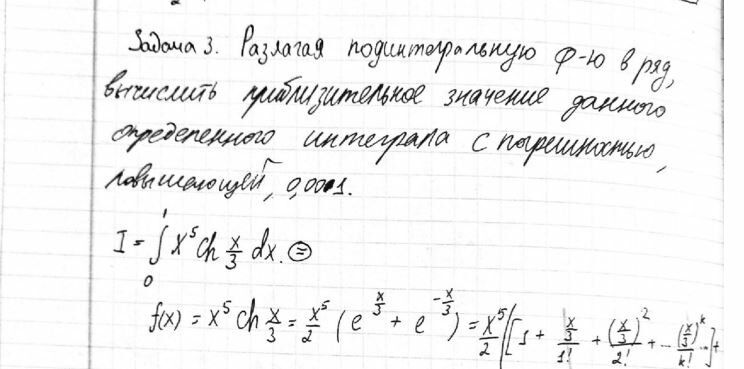 Задача 3. Разлагая подинтегральную ф-ю в ряд,
вычислить приблизительное значение данного
определенного интеграла с погрешностью,
0,0001.
I = ∫₀¹ x⁵ ch x/3 dx. ⊜
f(x) = x⁵ ch x/3 = x⁵/2 (e^(x/3) + e^(-x/3)) = x⁵/2 ([1 + (x/3)/1! + (x/3)²/2! + ... (x/3)^k/k! ...] +